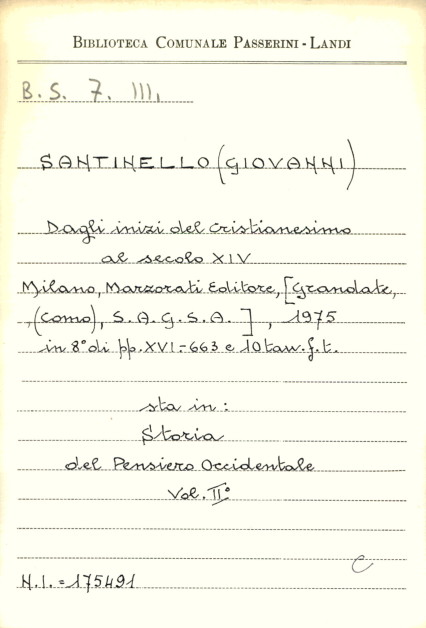 BIBLIOTECA COMUNALE PASSERINI - LANDI
B. S. 7. III,
SANTINELLO (GIOVANNI)
Dagli inizi del cristianesimo
al secolo XIV
Milano, Marzorati Editore, [Grandate,
,(Como), S.A.G.S.A. ] , 1975
in 8° di pp. XVI.-663 e 10 tav. f. t.
sta in :
Storia
del Pensiero Occidentale
Vol. II°
C
N.I. = 175491